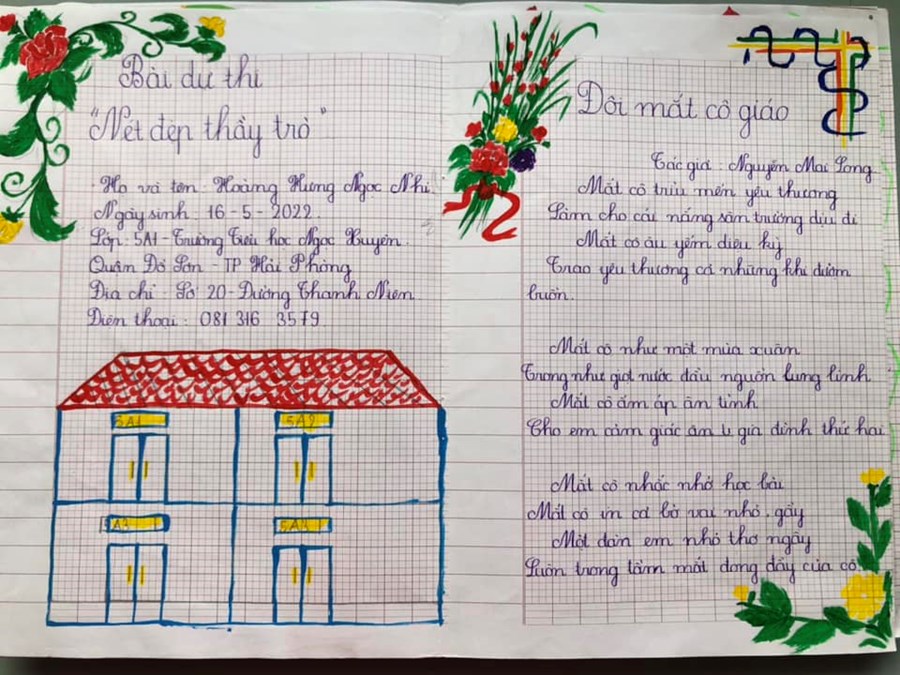 Bài dự thi
"Nét đẹp thầy trò"
Họ và tên: Hoàng Hưng Ngọc Nhi
Ngày sinh: 16-5-2022.
Lớp: 5A1-Trường Tiểu học Ngọc Xuyên.
Quận Đồ Sơn - TP Hải Phòng
Địa chỉ: Số 20-Đường Thanh Niên
Điện thoại: 081 316 3579
5A1
5A2
5A3
5A3
Đôi mắt cô giáo
Tác giả: Nguyễn Mai Long
Mắt cô trìu mến yêu thương
Làm cho cái nắng sân trường dịu đi
Mắt cô âu yếm diệu kỳ
Trao yêu thương cả những khi đượm
buồn.
Mắt cô như một mùa xuân
Trong như giọt nước đầu nguồn lung linh
Mắt cô ấm áp ân tình
Cho em cảm giác gia đình thứ hai
Mắt cô nhắc nhở học bài
Mắt cô in cả bờ vai nhỏ, gầy
Một đàn em nhỏ thơ ngây
Luôn trong tầm mắt dong đầy của cô.